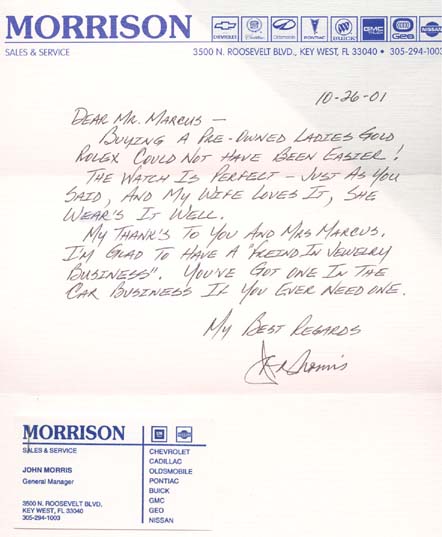 MORRISON
CHEVROLET Oldsmobile PONTIAC BUICK GMC Geo NISSAN
SALES & SERVICE 3500 N. ROOSEVELT BLVD., KEY WEST, FL 33040 • 305-294-1003
10-26-01
DEAR MR. MARCUS —
BUYING A PRE-OWNED LADIES GOLD
ROLEX COULD NOT HAVE BEEN EASIER!
THE WATCH IS PERFECT - JUST AS YOU
SAID, AND MY WIFE LOVES IT, SHE
WEAR'S IT WELL.
MY THANK'S TO YOU AND MRS MARCUS.
I'M GLAD TO HAVE A "FREIND IN JEWELRY
BUSINESS". YOU'VE GOT ONE IN THE
CAR BUSINESS IF YOU EVER NEED ONE.
MY BEST REGARDS
MORRISON
SALES & SERVICE
JOHN MORRIS
General Manager
3500 N. ROOSEVELT BLVD.
KEY WEST, FL 33040
305-294-1003
GM NISSAN
CHEVROLET
CADILLAC
OLDSMOBILE
PONTIAC
BUICK
GMC
GEO
NISSAN